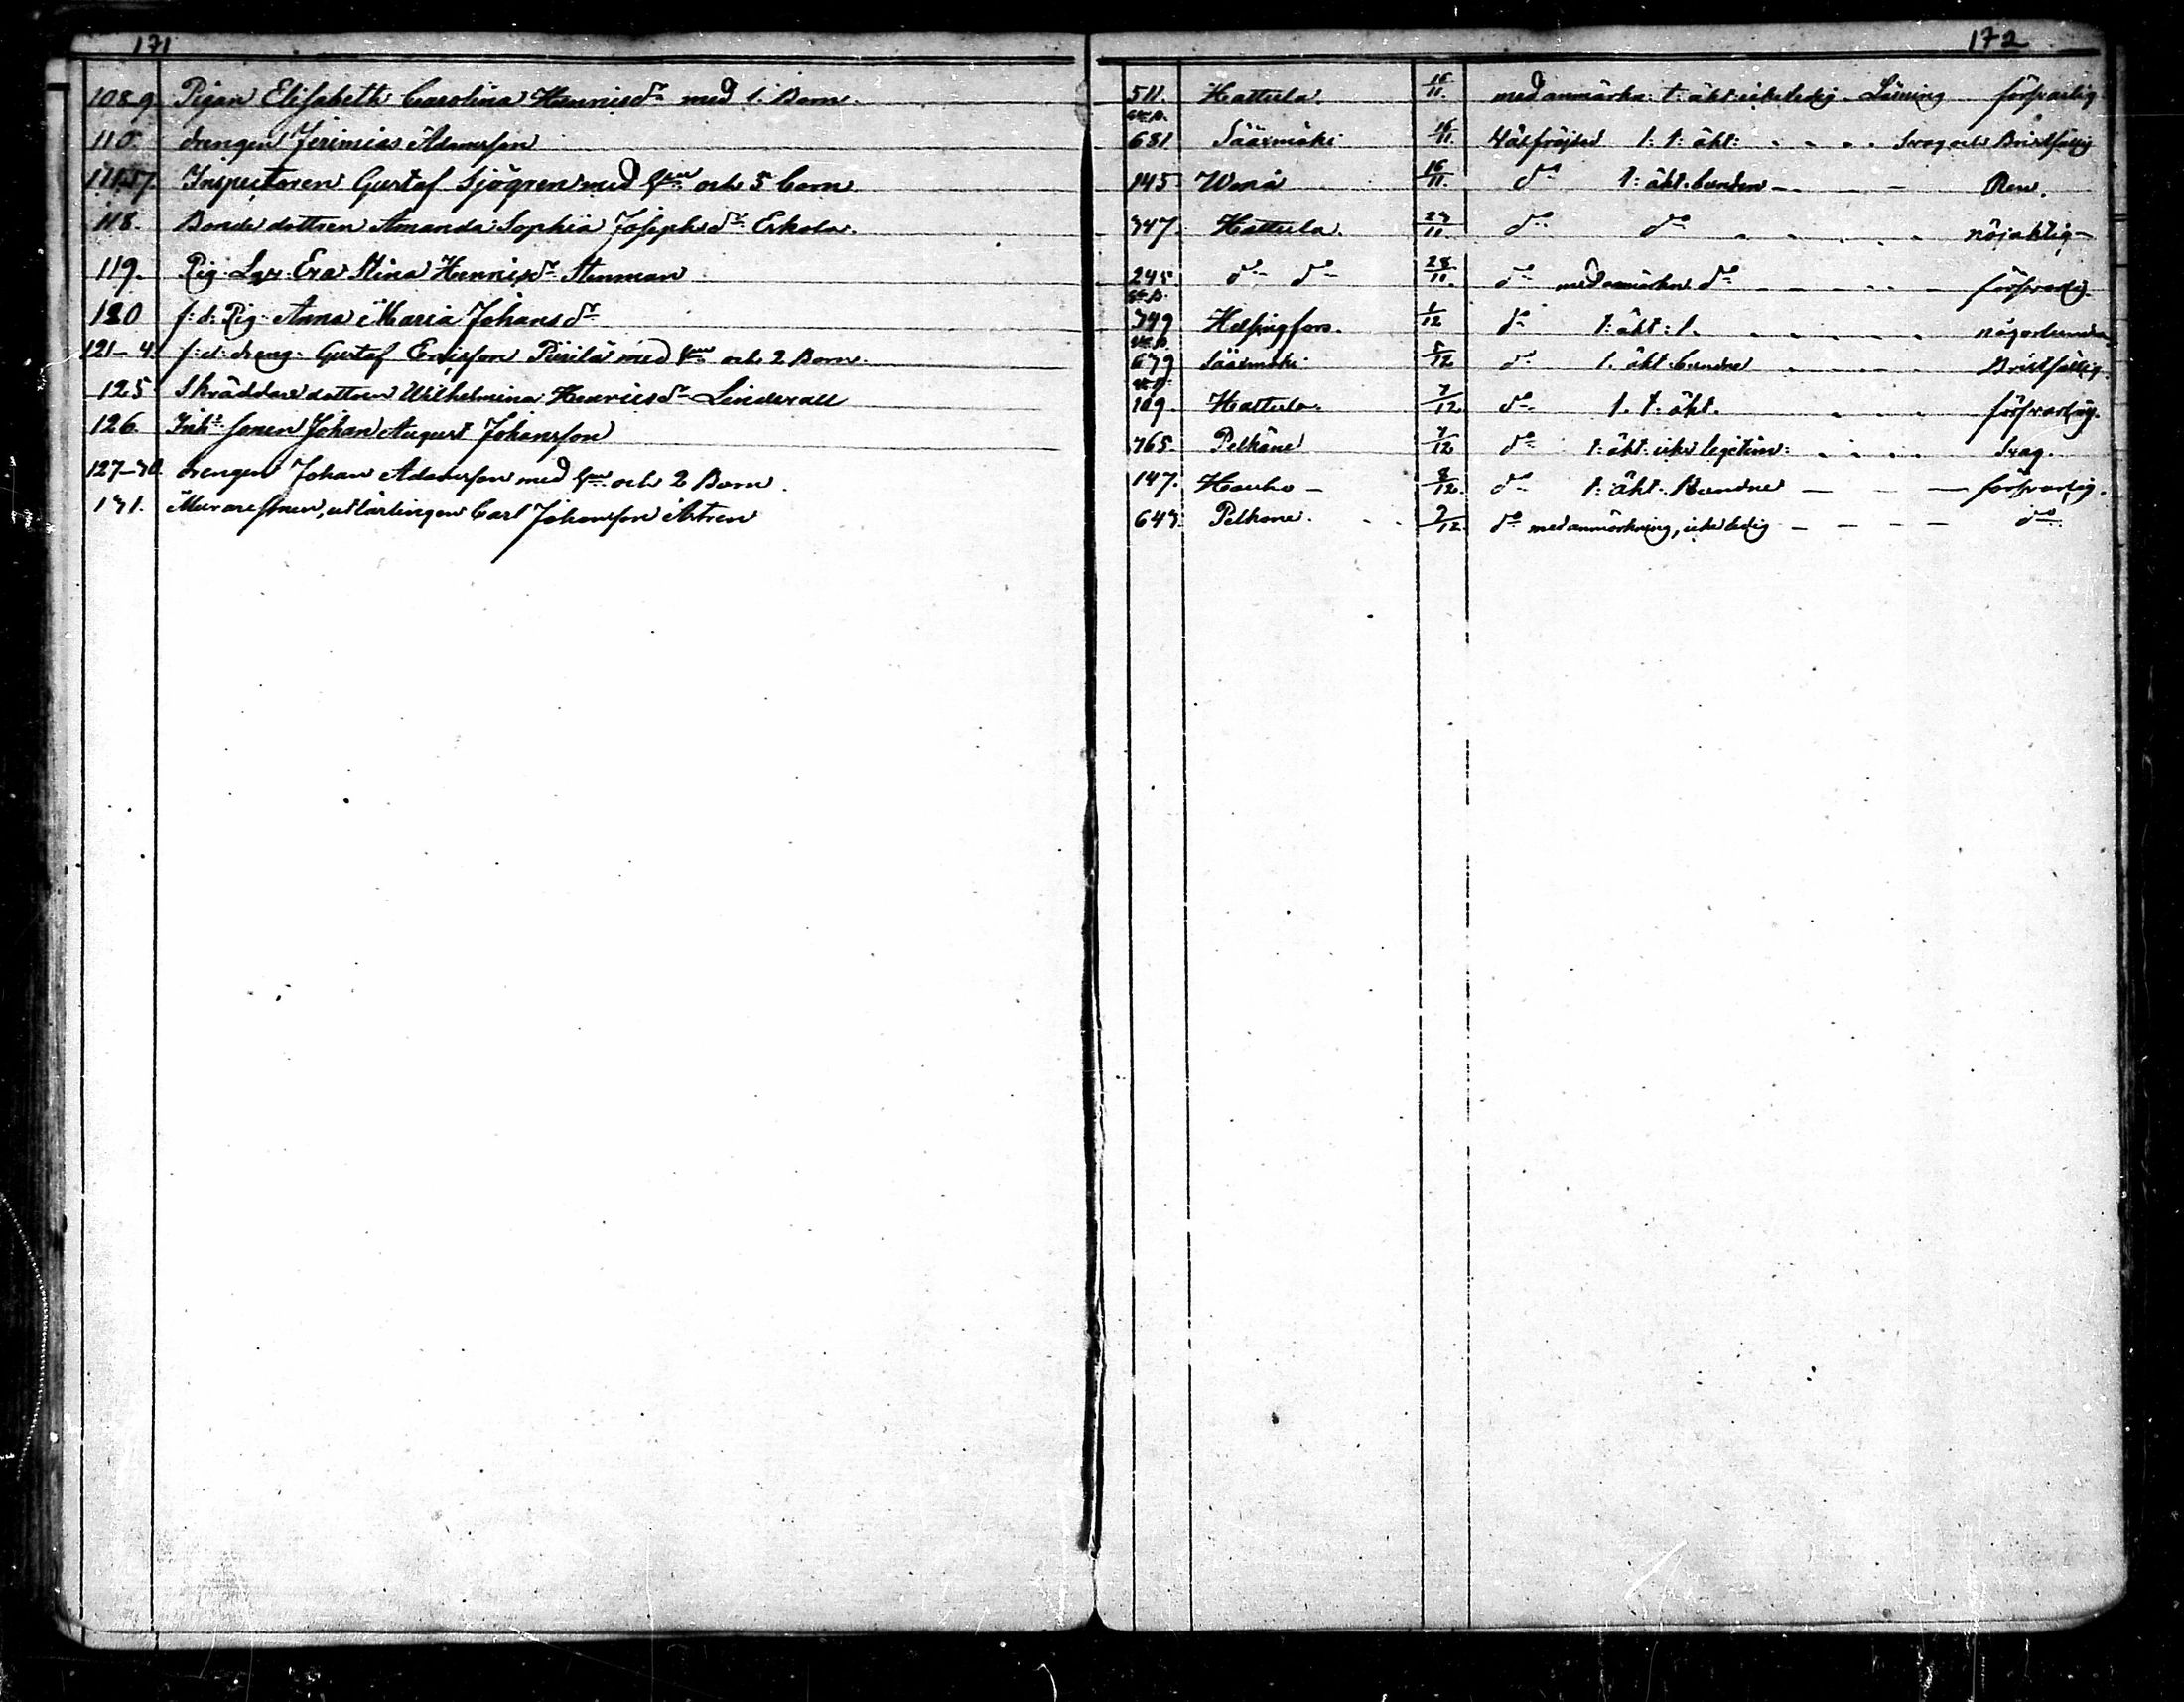 171
108-9. Pigan Elisabeth Carolina Henricsdr med 1. Barn.
110. drengen Jerimias Adamsson
111-17. Inspectoren Gustaf Sjögren med hu och 5 barn
118. Bonde dottren Amanda Sophia Josephsdr Erkola.
119. Pig. Eva Stina Henricsdr Stenman
120 f: d: Pig: Anna Maria Johansdr
121-4. f: d: dreng: Gustaf Ericsson Pirilä med hu och 2 Barn.
125 Skräddare dottren Wilhelmina Henricsdr Linderall
126. Inh: sonen Johan August Johansson
127-30. drengen Johan Adamsson med hu och 2 Barn.
131. Murare sonen, utlärlingen Carl Johansson
172
511. Hattula. 16/11. med anmärkn: t: äkt: icke ledig. Läsning försvarlig
681 Sääxmäki 16/11. Wälfräjdad l: t: äkt: Svag och Bristfällig
145 Wånå 16/11. do t: äkt. bunden Ren.
747. Hattula. 27/11. do do nöjaktig
245. do do 28/11. do med anmärkn do försvarlig.
749 Helsingfors. 1/12 do t: äkt: l. någorlunda
679 Sääxmäki 5/12 do l. äkt bundne Bristfällig.
109. Hattula. 7/12 do l. t. äkt. försvarlig.
765. Pelkäne 7/12 do t: äkt: icke legitim: Svag.
147. Hauho 8/12. do t: äkt. bundne försvarlig.
643. Pelkäne. 9/12. do med anmärkning, icke ledig do